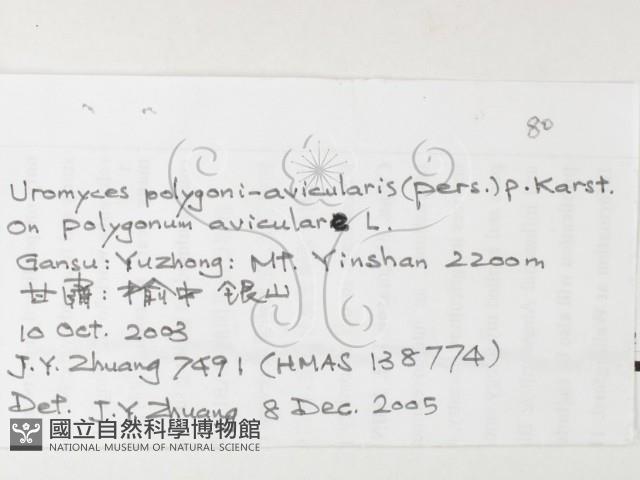 80
Uromyces polygoni-avicularis (pers.) p. Karst.
On polygonum aviculare L.
Gansu: Yuzhong: Mt. Yinshan 2200m
甘肅: 榆中 銀山
10 Oct. 2003
J.Y. Zhuang 7491 (HMAS 138774)
Det. J.Y. Zhuang 8 Dec. 2005
國立自然科學博物館
NATIONAL MUSEUM OF NATURAL SCIENCE